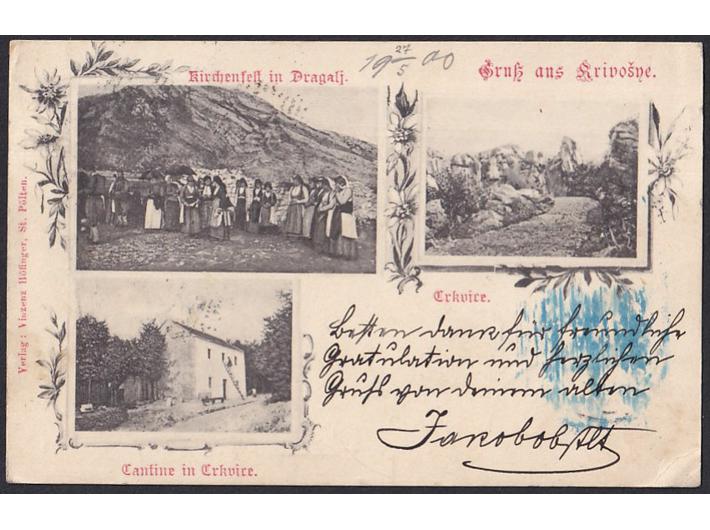 Kirchenfest in Dragalj.
19 27/5 00
Gruß aus Krivošye.
Verlag: Vinzenz Höfinger, St. Pölten.
Crkvice.
Besten dank für freundliche
Gratulation und herzlichen
Gruß von deinem alten
Cantine in Crkvice.